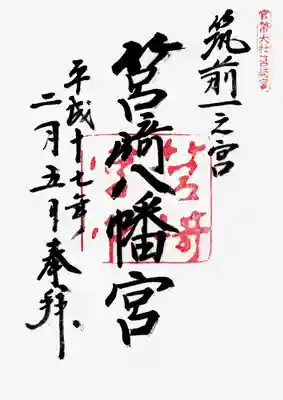 官幣大社筥崎宮
筑前一之宮
筥崎八幡宮
平成十七年
二月五日奉拝